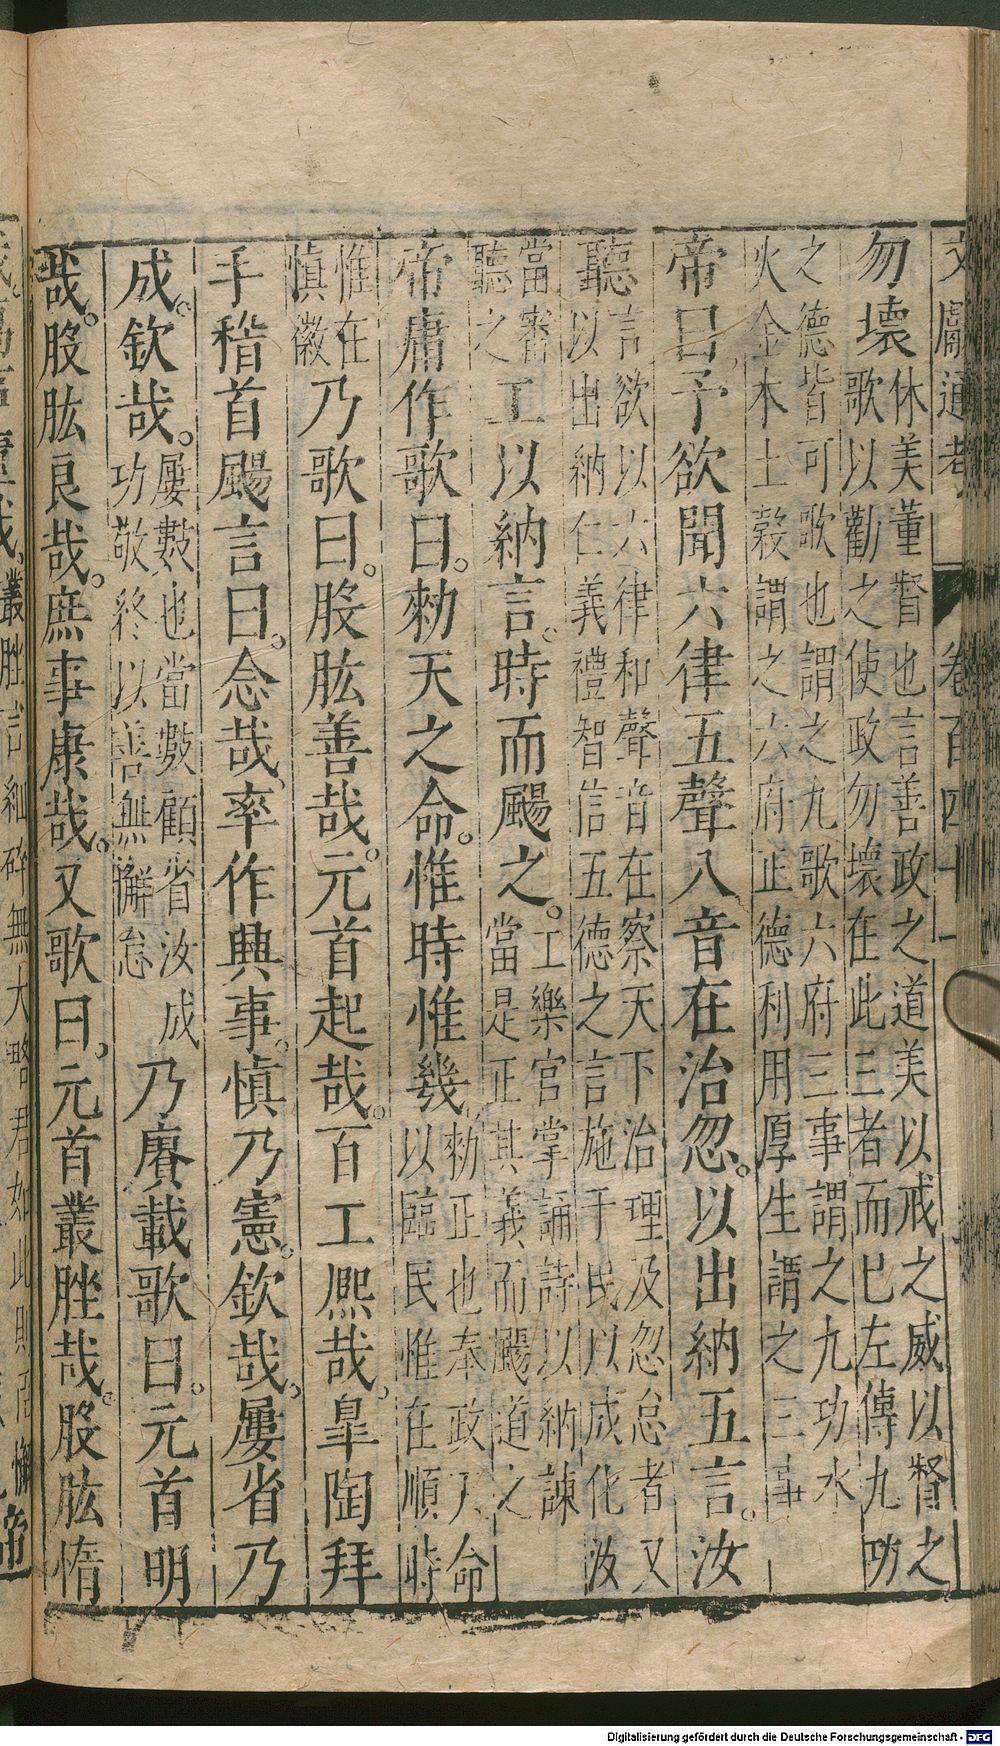 文獻通考 卷百四十一
勿壞休美董督也言善政之道美以戒之威以督之
歌以勸之使政勿壞在此三者而已左傳九功
之德皆可歌也謂之九歌六府三事謂之九功水
火金木土穀謂之六府正德利用厚生謂之三事
帝曰予欲聞六律五聲八音在治忽。以出納五言。汝
聽言欲以六律和聲音在察天下治理及忽怠者又
以出納仁義禮智信五德之言施于民以成化汝
當審
聽之工以納言。時而颺之。工樂官掌誦詩以納諫
當是正其義而颺道之
帝庸作歌曰。勑天之命。惟時惟幾。勑正也奉政天命
以臨民惟在順時
惟在
慎微乃歌曰。股肱善哉。元首起哉。百工熈哉。臯陶拜
手稽首颺言曰。念哉。率作興事。慎乃憲。欽哉。屢省乃
成。欽哉。屢數也當數顧省汝成
功敬終以善無懈怠
乃賡載歌曰。元首明
哉。股肱良哉。庶事康哉。又歌曰。元首叢脞哉。股肱惰
叢脞言細碎無大略君如此則
帝
Digitalisierung gefördert durch die Deutsche Forschungsgemeinschaft - DFG